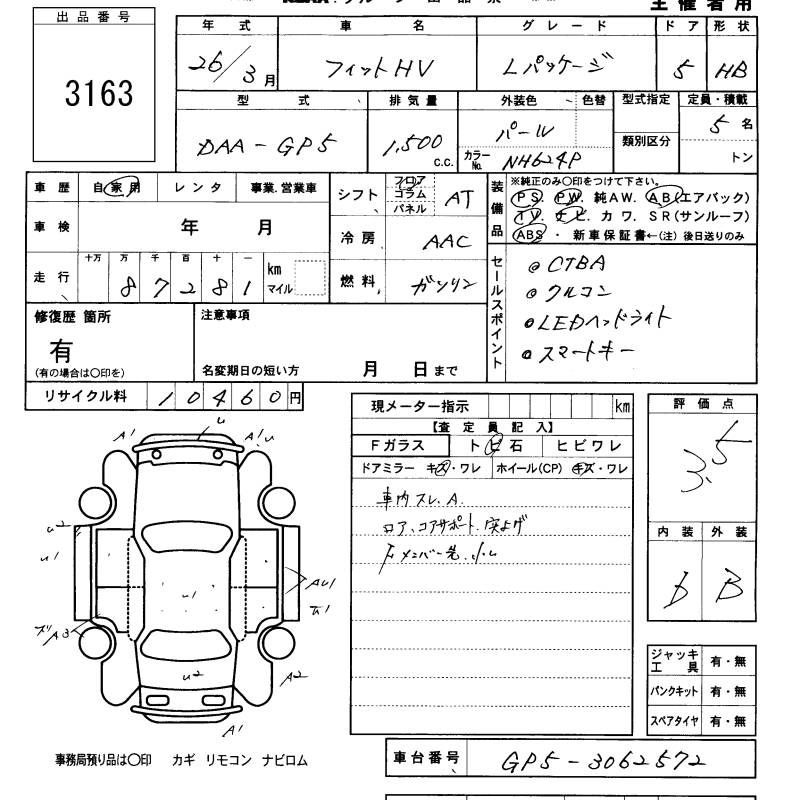 主催者用
出品番号
3163
年式 車名 グレード ドア 形状
26/3月 フィットHV Lパッケージ 5 HB
型式 排気量 外装色 色替 型式指定 定員・積載
DAA-GP5 1,500 c.c. パール 5名
カラーNo. NH624P 類別区分 トン
車歴 自家用 レンタ 事業.営業車
シフト フロア コラム パネル AT
装備品
※純正のみ〇印をつけて下さい。
PS. PW. 純AW. AB(エアバック)
TV. ナビ. カワ. SR(サンルーフ)
ABS ・ 新車保証書←(注) 後日送りのみ
車検 年 月
冷房 AAC
走行 十万 万 千 百 十 一
87281 km マイル
燃料 ガソリン
セールスポイント
◎ CTBA
◎ クルコン
◎ LEDヘッドライト
◎ スマートキー
修復歴 箇所
有
(有の場合は〇印を)
注意事項
名変期日の短い方 月 日まで
リサイクル料 10460円
現メーター指示 km
【査定員記入】
Fガラス トビ石 ヒビワレ
ドアミラー キズ・ワレ ホイール(CP) キズ・ワレ
車内スレ.A.
コア、コアサポート.突上げ
評価点
3.5
内装 外装
B
A1 u A1 u
u2
u1
u1
AU1
A3
u2
A2
A1
ジャッキ工具 有・無
パンクキット 有・無
スペアタイヤ 有・無
事務局預り品は〇印 カギ リモコン ナビロム
車台番号 GP5-3062572